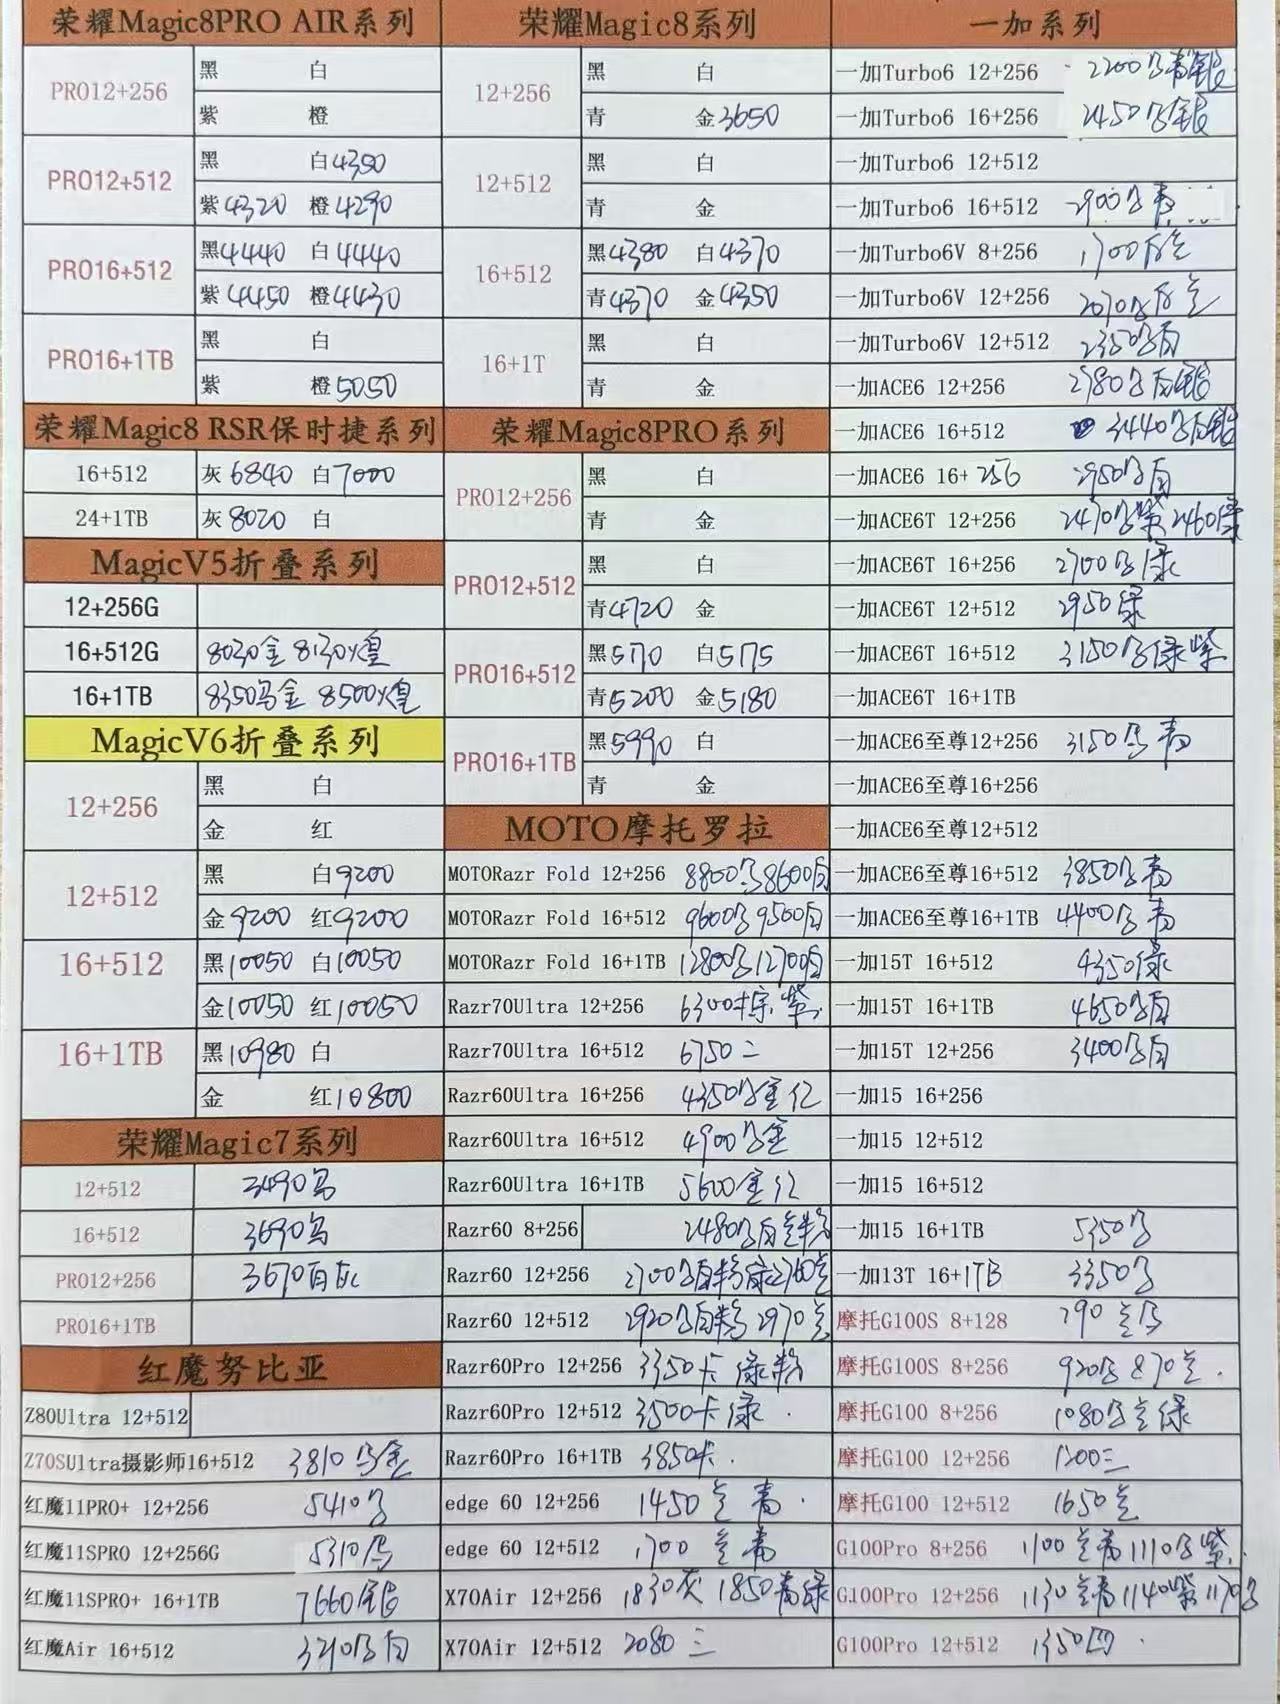 荣耀Magic8PRO AIR系列
PRO12+256
黑 白
紫 橙
PRO12+512
黑 白4350
紫4320 橙4290
PRO16+512
黑4440 白4440
紫4450 橙4430
PRO16+1TB
黑 白
紫 橙5050
荣耀Magic8 RSR保时捷系列
16+512 灰6840 白7000
24+1TB 灰8020 白
MagicV5折叠系列
12+256G
16+512G 8030金 8130火皇
16+1TB 8350乌金 8500火皇
MagicV6折叠系列
12+256
黑 白
金 红
12+512
黑 白9200
金9200 红9200
16+512
黑10050 白10050
金10050 红10050
16+1TB
黑10980 白
金 红10800
荣耀Magic7系列
12+512 3490乌
16+512 3690乌
PRO12+256 3670白灰
PRO16+1TB
红魔努比亚
Z80Ultra 12+512
Z70SUltra摄影师16+512 3810乌金
红魔11PRO+ 12+256 5410乌
红魔11SPRO 12+256G 5310乌
红魔11SPRO+ 16+1TB 7660银
红魔Air 16+512 3210乌白
荣耀Magic8系列
12+256
黑 白
青 金3650
12+512
黑 白
青 金
16+512
黑4380 白4370
青4370 金4350
16+1T
黑 白
青 金
荣耀Magic8PRO系列
PRO12+256
黑 白
青 金
PRO12+512
黑 白
青4720 金
PRO16+512
黑5170 白5175
青5200 金5180
PRO16+1TB
黑5990 白
青 金
MOTO摩托罗拉
MOTORazr Fold 12+256 8800乌8600白
MOTORazr Fold 16+512 9600乌9500白
MOTORazr Fold 16+1TB 12800乌12700白
Razr70Ultra 12+256 6300棕.紫.
Razr70Ultra 16+512 6750二
Razr60Ultra 16+256 4350乌金红
Razr60Ultra 16+512 4900乌金
Razr60Ultra 16+1TB 5600金红
Razr60 8+256 2480乌白兰粉
Razr60 12+256 2700乌白粉绿2760兰
Razr60 12+512 2920乌白粉 2970兰
Razr60Pro 12+256 3350卡 绿粉
Razr60Pro 12+512 3500卡绿.
Razr60Pro 16+1TB 3850卡.
edge 60 12+256 1450兰青.
edge 60 12+512 1700兰青
X70Air 12+256 1830灰 1850青绿
X70Air 12+512 2080三
一加系列
一加Turbo6 12+256 2200乌青银
一加Turbo6 16+256 2450乌银
一加Turbo6 12+512
一加Turbo6 16+512 2900乌青
一加Turbo6V 8+256 1700兰
一加Turbo6V 12+256 2070乌兰
一加Turbo6V 12+512 2350乌白
一加ACE6 12+256 2780乌白银
一加ACE6 16+512 3440乌白银
一加ACE6 16+256 2950乌白
一加ACE6T 12+256 2470乌紫 2460绿
一加ACE6T 16+256 2700乌绿
一加ACE6T 12+512 2950绿
一加ACE6T 16+512 3150乌绿紫
一加ACE6T 16+1TB
一加ACE6至尊12+256 3150乌青
一加ACE6至尊16+256
一加ACE6至尊12+512
一加ACE6至尊16+512 3850乌青
一加ACE6至尊16+1TB 4400乌青
一加15T 16+512 4350绿
一加15T 16+1TB 4650乌白
一加15T 12+256 3400乌白
一加15 16+256
一加15 12+512
一加15 16+512
一加15 16+1TB 5350乌
一加13T 16+1TB 3350乌
摩托G100S 8+128 790兰乌
摩托G100S 8+256 920乌 870兰.
摩托G100 8+256 1080乌兰绿
摩托G100 12+256 1200三
摩托G100 12+512 1650兰
G100Pro 8+256 1100兰青1110乌紫.
G100Pro 12+256 1130兰青1140紫1170乌
G100Pro 12+512 1350四.